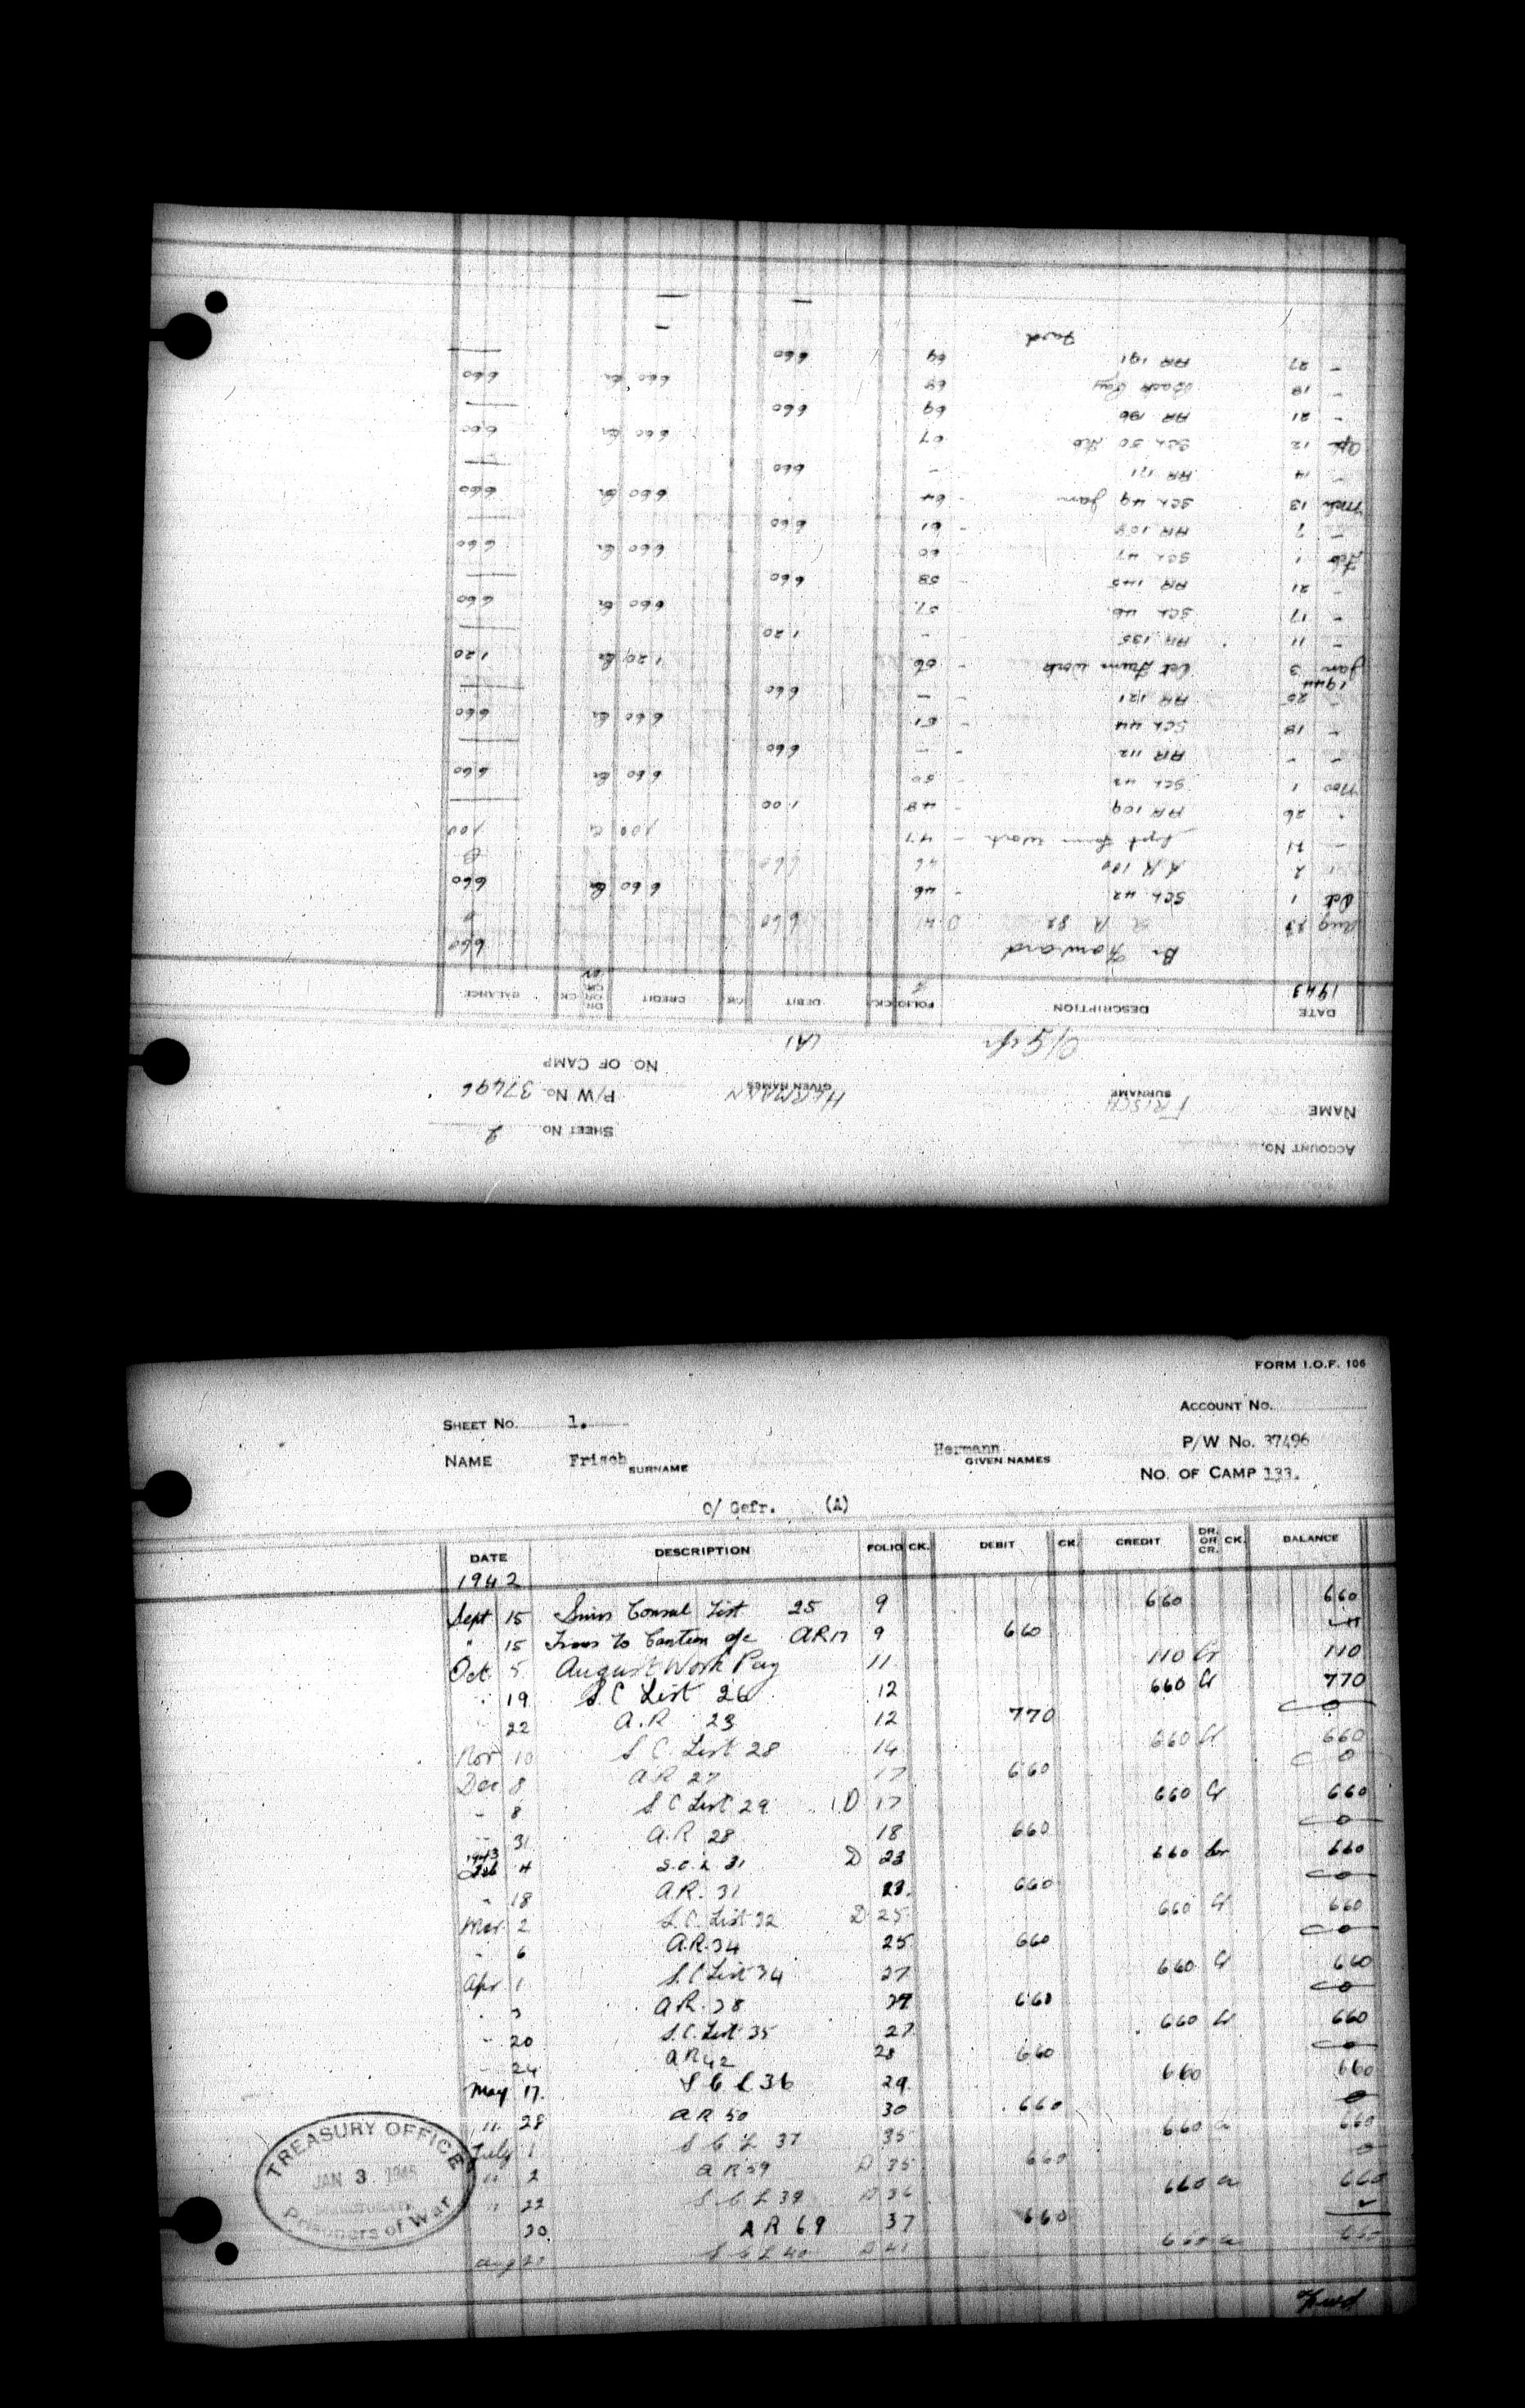 ACCOUNT No.
SHEET No. 2
NAME FRISCH SURNAME HERMANN GIVEN NAMES P/W No. 37496
NO. OF CAMP
O/Gefr (A)
DATE DESCRIPTION FOLIO CK. DEBIT CK. CREDIT DR. OR CR. CK. BALANCE
1943
Br Forward 660
Aug 27 A R 82 D 41 660
Oct 1 Sch. 42 - 46 660 Cr 660
2 A.R. 100 46 660
- 21 Sept Farm Work - 47 100 Cr 100
" 26 AR 109 - 48 1.00
Nov 1 Sch 43 - 50 660 Cr 660
- - AR 112 - - 660
- 18 Sch 44 - 51 660 Cr 660
- 25 AR 121 - - 660
1944
Jan 3 Oct Farm Work - 56 1 20 Cr 1 20
- 11 AR 135 - - 1 20
- 17 Sch 46. 57. 660 Cr 660
- 21 AR 145 - 58 660
Feb 1 Sch 47 60 660 Cr 660
- 7 AR 158 - 61 660
Mch 13 Sch 49 Jan - 64 660 Cr 660
- 14 AR 171 - 660
Apl 12 Sch 50 Feb 67 660 Cr 660
- 21 AR 186 69 660
- 19 Back Pay 69 660 Cr 660
- 27 AR 191 69 660
Fwd
FORM I.O.F. 106
SHEET No. 1. ACCOUNT No.
NAME Frisch SURNAME Hermann GIVEN NAMES P/W No. 37496
NO. OF CAMP 133.
O/ Gefr. (A)
DATE DESCRIPTION FOLIO CK. DEBIT CK. CREDIT DR. OR CR. CK. BALANCE
1942
Sept 15 Swiss Consul List 25 9 660 660
" 15 Trans to Canteen a/c AR17 9 660
Oct. 5 August Work Pay 11 110 Cr 110
" 19 S.C List 26 12 660 Cr 770
" 22 A.R 23 12 770 0
Nov 10 S.C. List 28 14 660 Cr 660
Dec 8 AR 27 17 660 0
- 8 S C List 29 D 17 660 Cr 660
- 31 A.R 28 18 660 0
1943
Feb 4 S.C.L 31 D 23 660 Cr 660
" 18 A.R. 31 23. 660 0
Mar 2 S.C. List 32 D 25 660 Cr 660
" 6 A.R. 34 25 660 0
Apr 1 S.C List 34 27 660 Cr 660
" 3 AR. 38 27 660 0
- 20 S.C. List 35 27 660 Cr 660
- 24 AR 42 28 660 0
May 17. S C L 36 29. 660 660
" 28 AR 50 30 660 0
July 1 S C L 37 35 660 Cr 660
" 2 AR 59 D 35 660 0
" 22 S C L 39 D 36 660 Cr 660
30 AR 69 37 660
Aug 27 S C L 40 D 41 660 Cr 660
Fwd
TREASURY OFFICE
JAN 3 1945
Prisoners of War